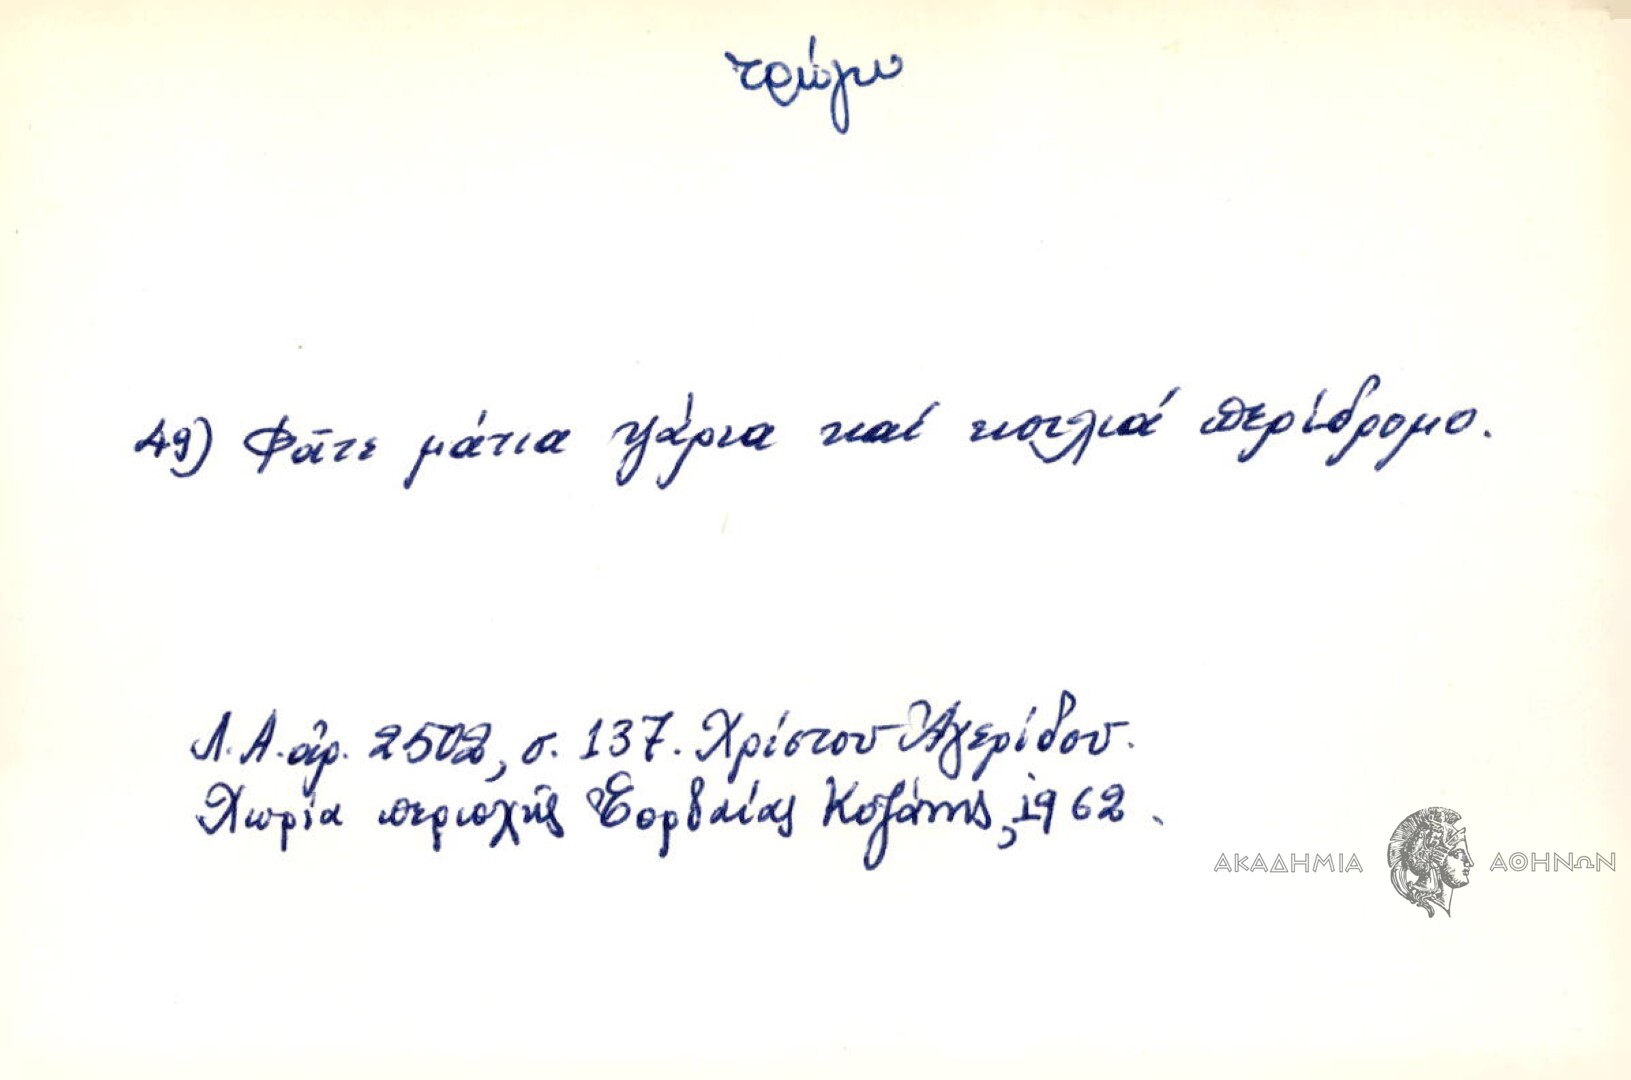 τρώγω
49) Φᾶτε μάτια ψάρια καί κοιλιά περίδρομο.
Λ.Α. ἀρ. 2502, σ. 137. Χρίστου Ἀγερίδου.
Χωρία περιοχῆς Ἑορδαίας Κοζάνης, 1962.
ΑΚΑΔΗΜΙΑ ΑΘΗΝΩΝ